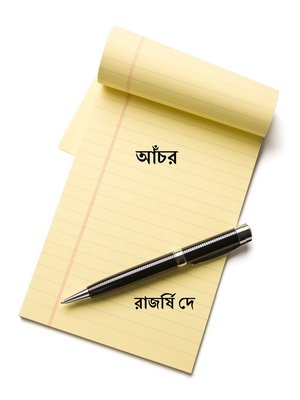 আঁচর
রাজর্ষি দে